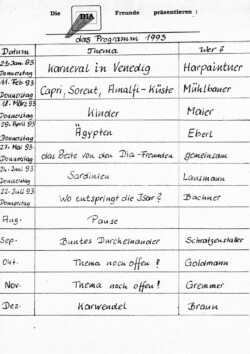 Die DIA Freunde präsentieren!
das Programm 1993
Datum Thema Wer?
Donnerstag Karneval in Venedig Harpaintner
11. Feb. 93
Donnerstag Capri, Sorent, Amalfi-Küste Mühlbauer
18. März 93
Donnerstag Kinder Maier
29. April 93
Donnerstag Ägypten Eberl
27. Mai 93
Donnerstag das Beste von den Dia-Freunden gemeinsam
24. Juni 93
Donnerstag Sardinien Lansmann
22. Juli 93
Donnerstag Wo entspringt die Isar? Bachner
Aug. Pause
Sep. Buntes Durcheinander Schratzenstaller
Okt. Thema noch offen! Goldmann
Nov. Thema noch offen! Gremmer
Dez. Karwendel Braun